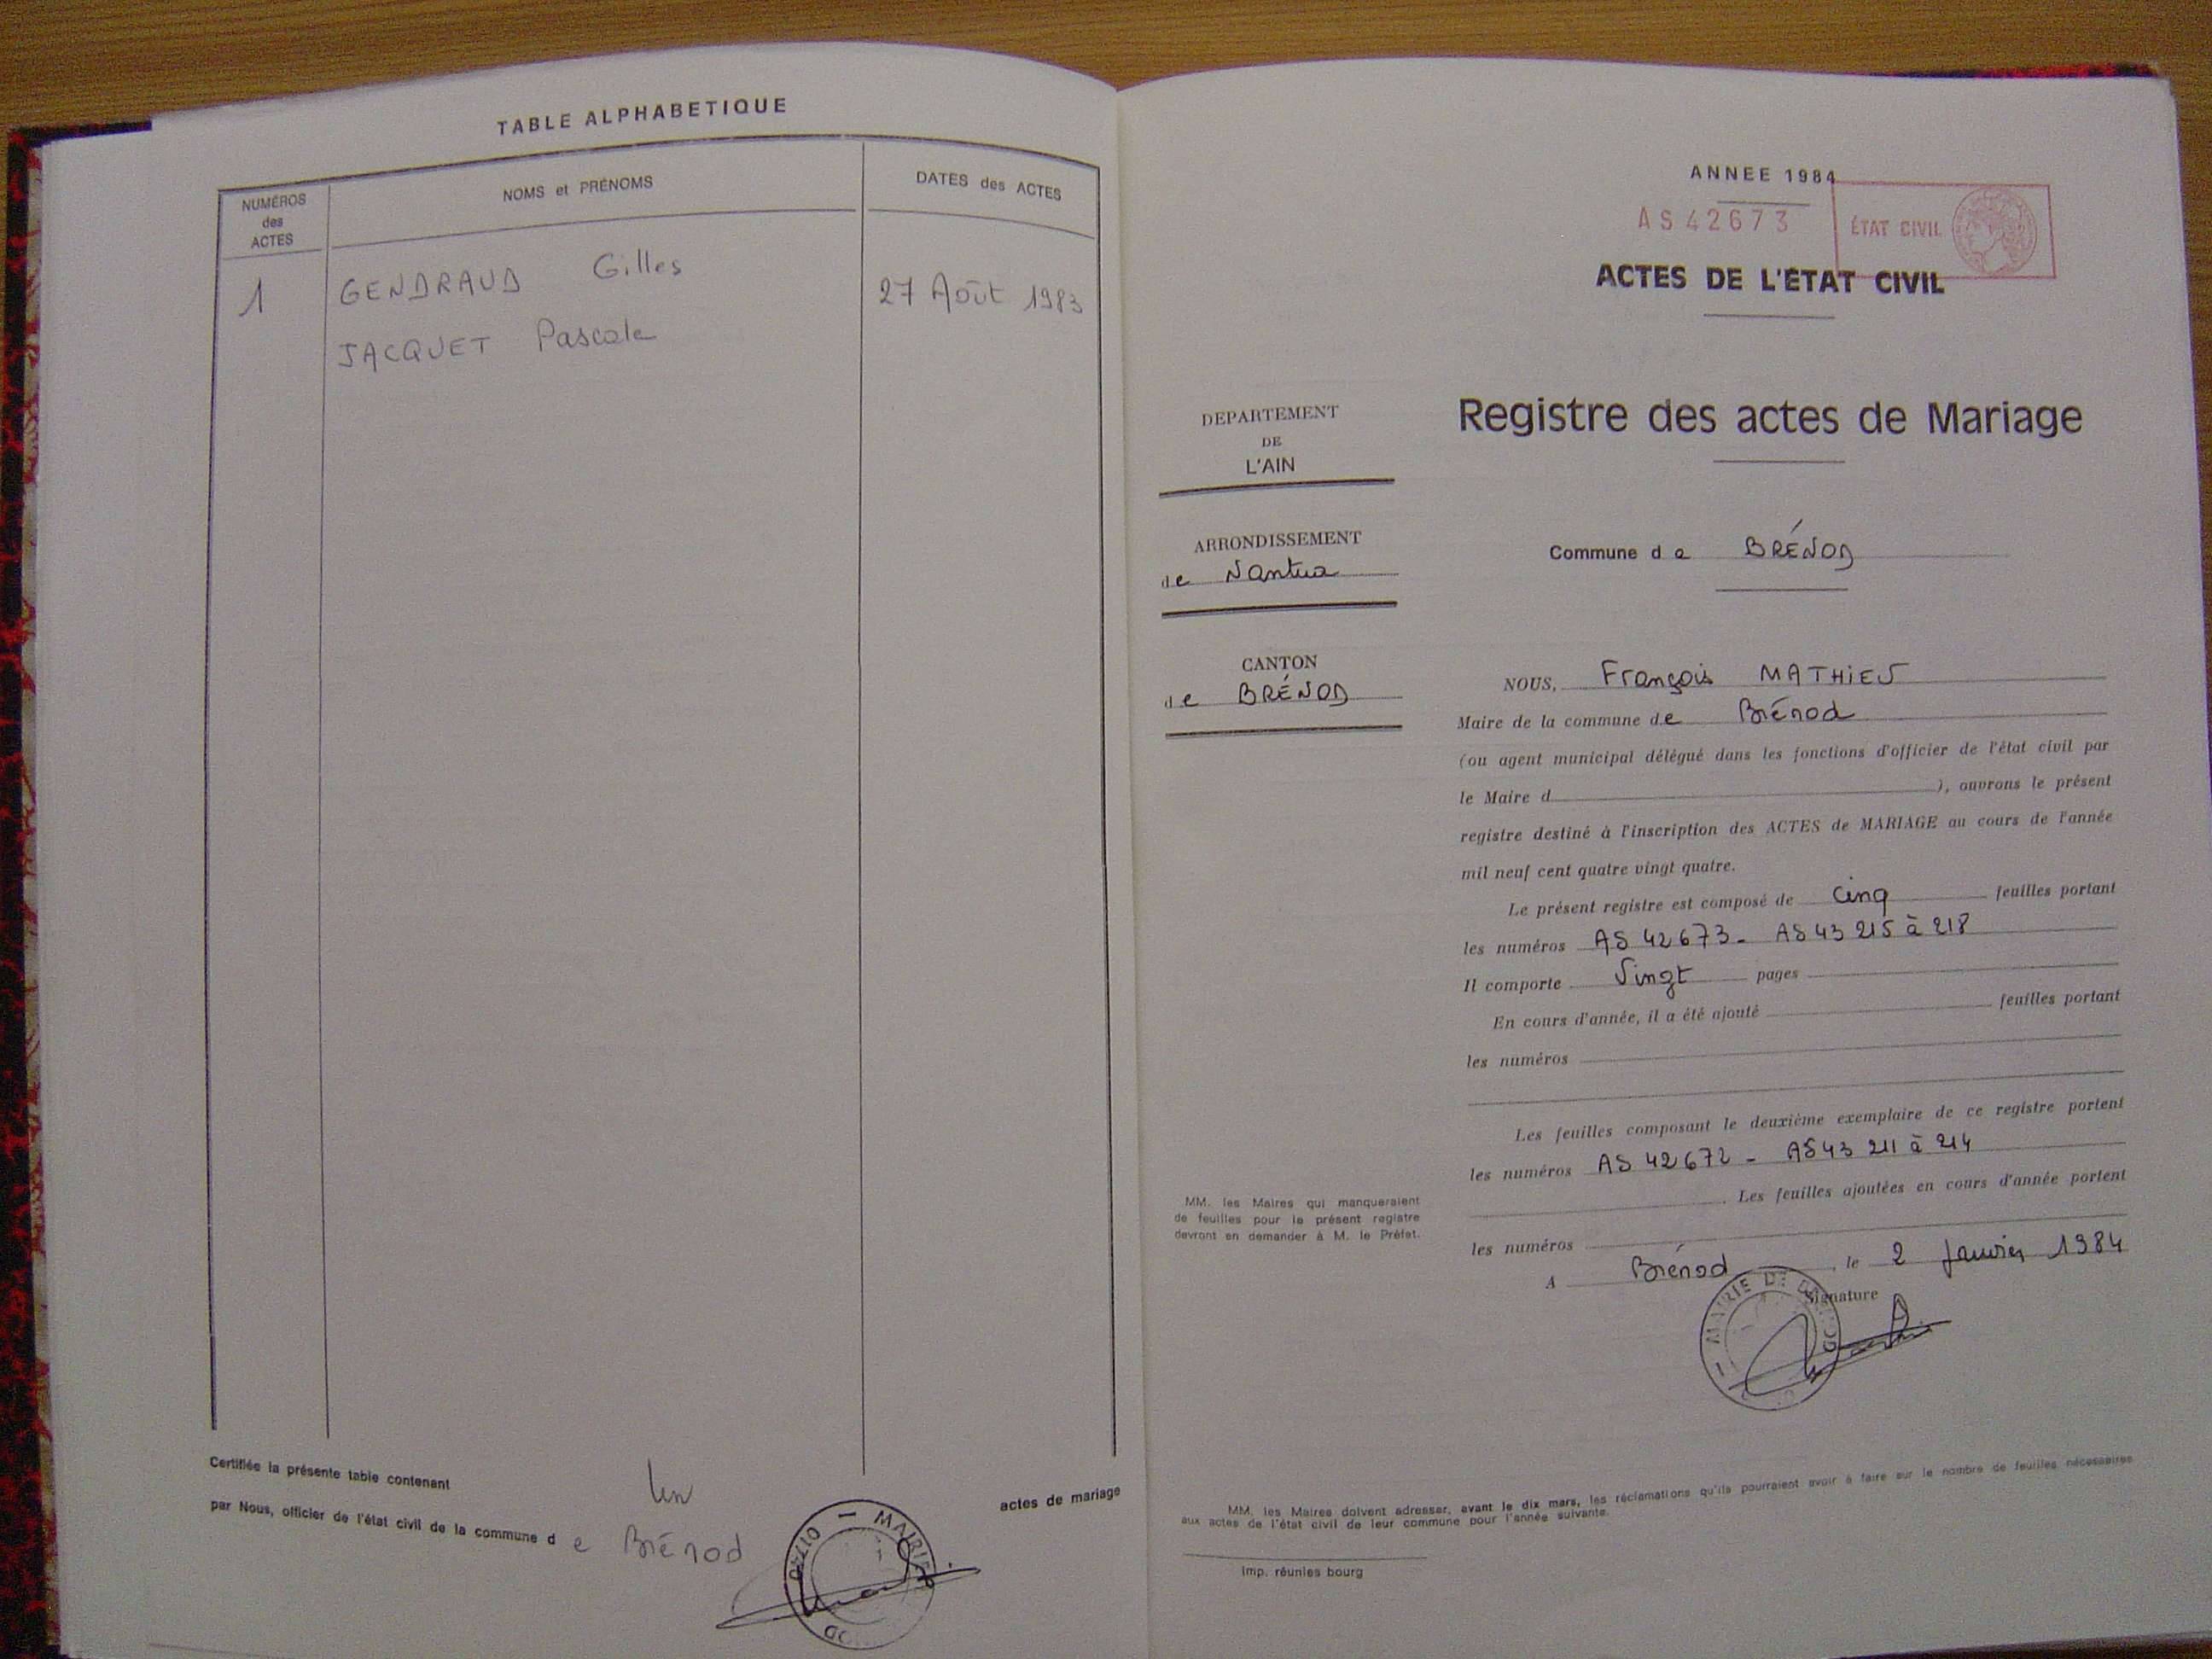 TABLE ALPHABETIQUE
NUMÉROS
des
ACTES
NOMS et PRÉNOMS
DATES des ACTES
1 GENDRAUD Gilles 27 Août 1983
JACQUET Pascale
Certifiée la présente table contenant Un actes de mariage
par Nous, officier de l'état civil de la commune d e Brénod
MAIRIE
01740
ANNEE 1984
AS 42673
ÉTAT CIVIL
ACTES DE L'ÉTAT CIVIL
Registre des actes de Mariage
DEPARTEMENT
DE
L'AIN
ARRONDISSEMENT
de Nantua
CANTON
de BRÉNOD
Commune d e BRÉNOD
NOUS, François MATHIEU
Maire de la commune de Brénod
(ou agent municipal délégué dans les fonctions d'officier de l'état civil par
le Maire d ), ouvrons le présent
registre destiné à l'inscription des ACTES de MARIAGE au cours de l'année
mil neuf cent quatre vingt quatre.
Le présent registre est composé de cinq feuilles portant
les numéros AS 42673 - AS 43 215 à 218
Il comporte Vingt pages
En cours d'année, il a été ajouté feuilles portant
les numéros
Les feuilles composant le deuxième exemplaire de ce registre portent
les numéros AS 42672 - AS 43 211 à 214
. Les feuilles ajoutées en cours d'année portent
les numéros
A Brénod , le 2 Janvier 1984
Signature
MAIRIE DE
MM. les Maires qui manqueraient
de feuilles pour le présent registre
devront en demander à M. le Préfet.
MM. les Maires doivent adresser, avant le dix mars, les réclamations qu'ils pourraient avoir à faire sur le nombre de feuilles nécessaires
aux actes de l'état civil de leur commune pour l'année suivante.
Imp. réunies bourg